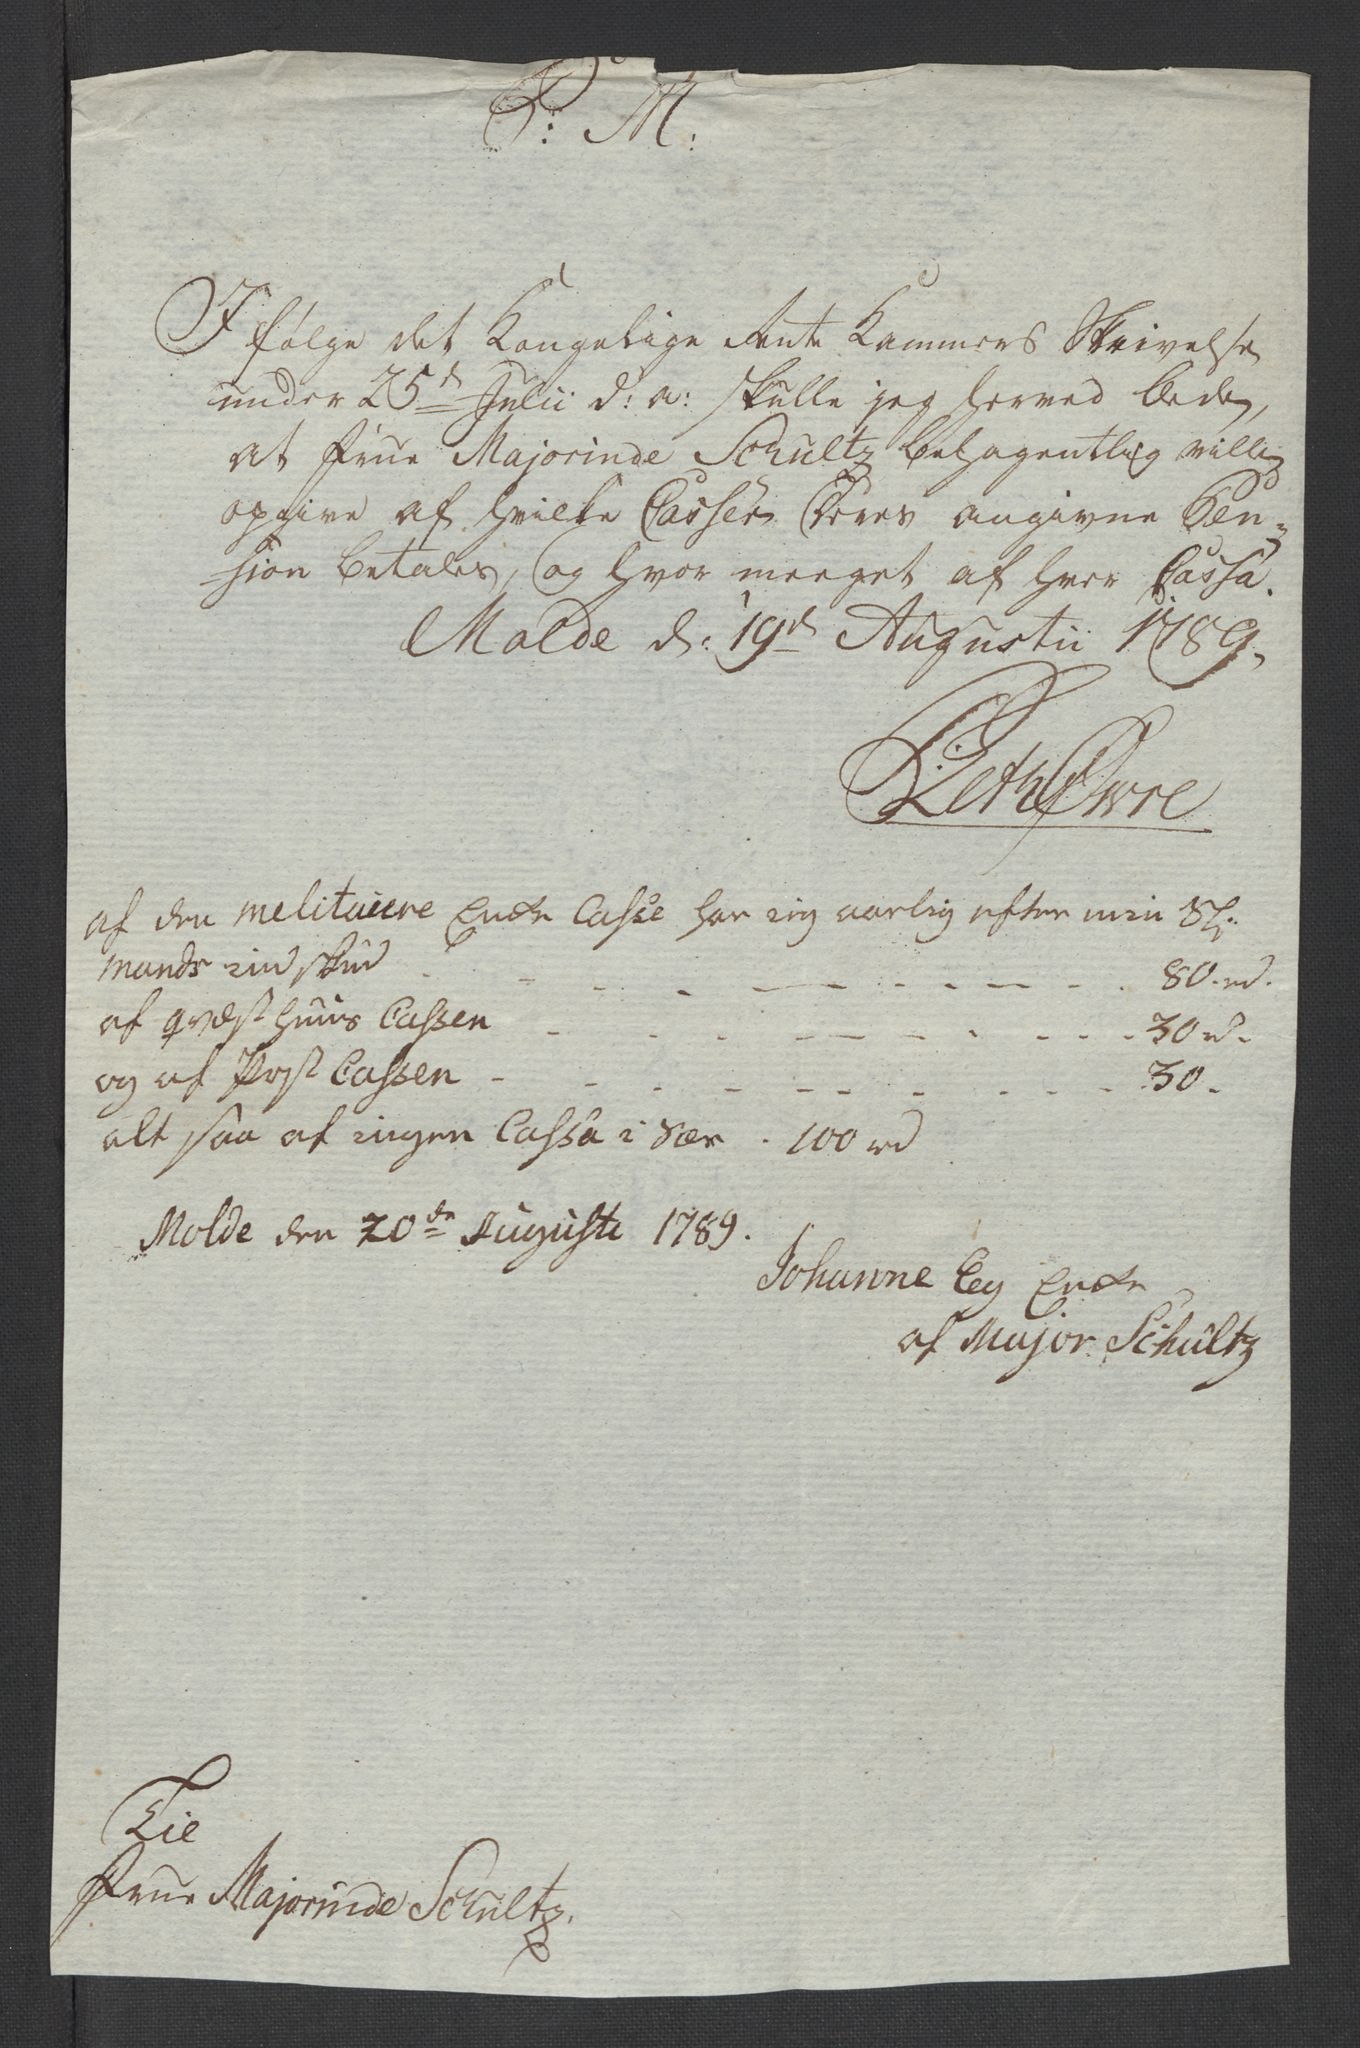 P: M:
I følge det Kongelige Rente Kammers Skrivelse
under 25d Julii d: a: skulle jeg herved bede,
at Frue Majorinde Schultz behagentlig ville
opgive af hvilke Casser Deres angivne Pen-
sion betales, og hvor meeget af hver Cassa.
Molde d: 19d Augustii 1789.
af den melitaiere Encke Casse har ieg aarlig efter min Sl:
mands indskud - - - 80 rd.
af qvæsthuus Cassen - - - 30 rd.
og af Post Cassen - - - 30.
alt saa af ingen Cassa i Sær . 100 rd
Molde den 20de Augusti 1789.
Johanne Eeg Encke
af Major Schultz
Tie
Frue Majorinde Schultz.